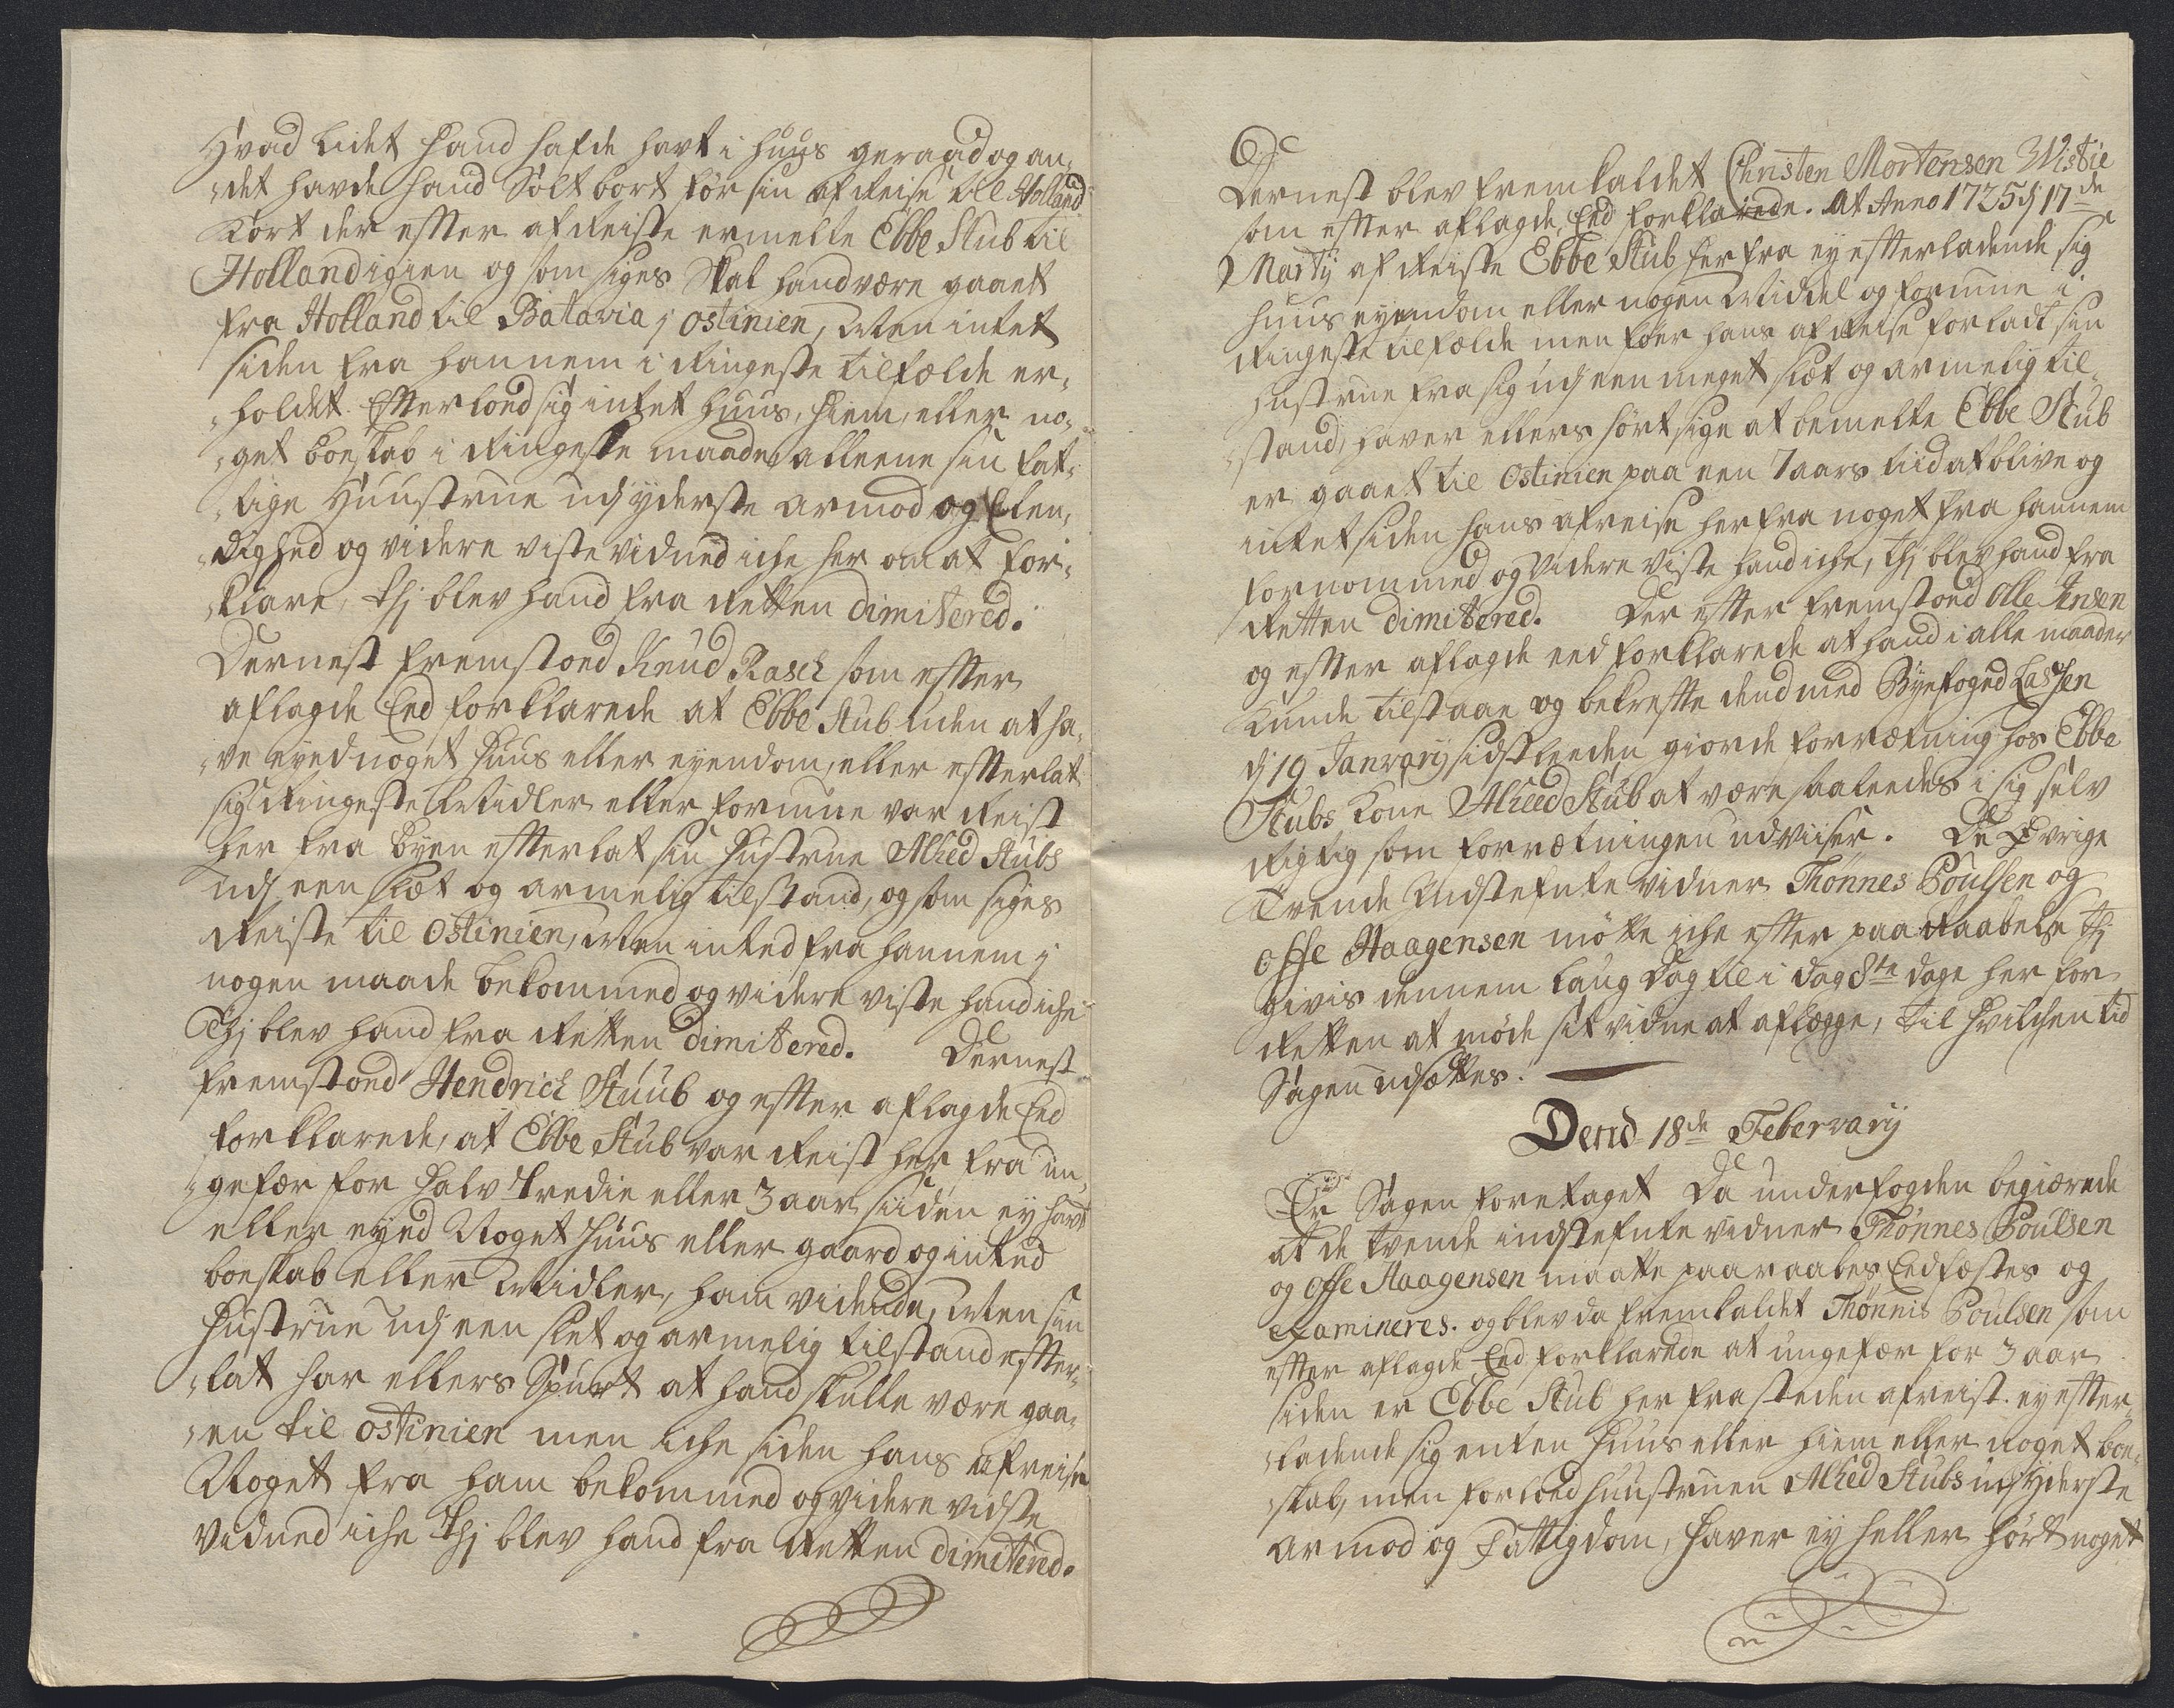 Hvad Lidet Hand hafde havt i Huus geraad og an¬
¬det havde Hand Solt bort før sin afReise til Holland
Kort der effter afReiste ermelte Ebbe Stub til
Holland igien og som siges Skal Hand være gaaet
fra Holland til Batavia j ostinien, Men intet
siden fra Hannem i Ringeste tilfælde er¬
¬holdet. Effterlond sig intet Huus, Hiem, eller no¬
¬get boeskab i Ringeste maade alleene sin fat¬
¬tige Huustrue udj yderste armod og Elen¬
¬dighed og videre viste vidned iche her om at for¬
¬klare, thj blev Hand fra Retten dimitered.
Dernest fremstoed Knud Rasch som effter
aflagde Eed forklarede at Ebbe Stub uden at ha¬
¬ve eyed noget Huus eller eyendom, eller effterlat
sig Ringeste Midler eller formue var Reist
her fra byen effterlat sin Hustrue Alhed Stubs
udj een slæt og armelig tilstand, og som siges
Reiste til Ostinien, Men inted fra Hannem j
nogen maade bekommed og videre viste Hand iche
Thj blev Hand fra Retten dimitered. Dernest
fremstoed Hendrich Stuub og effter aflagde Eed
forklarede, at Ebbe Stub var Reist her fra un¬
¬gefær for Halv Tredie eller 3 aar siiden ey havt
eller eyed Noget Huus eller gaard og inted
boeskab eller Midler, ham vidende, Men sin
Hustrue udj een slet og armelig tilstand effter¬
¬lat har ellers Spurt at Hand skulle være gaa¬
¬en til ostinien men iche siden Hans afreise
Noget fra Ham bekommed og videre vidste
Vidned iche Thj blev Hand fra Retten dimiterid.
Dernest blev fremkaldet Christen Mortensen Wistie
som effter aflagde Eed forklarede. At Anno 1725 dj 17de
Martij afReiste Ebbe Stub herfra ey effterladende sig
Huus eyendom eller nogen Middel og formue i
Ringeste tilfælde men foer Hans afReise forladt sin
Hustrue fra sig udj een meget slæt og armelig til¬
¬stand, haver ellers hørt sige at bemelte Ebbe Stub
er gaaet til Ostinien paa een 7 aars tiid at blive og
intet siden Hans afreise herfra noget fra Hannem
fornommed og Videre viste Hand iche, thj blev Hand fra
Retten dimitered. Der effter fremstoed Olle Jensen
og effter aflagde eed forklarede at Hand i alle maader
Kunde tilstaae og bekreffte dend med Byefoged Lassen
dj 19 Janvarij sidstleeden giorde forrætning hos Ebbe
Stubs Kone Alheed Stub at være saaleedes i sig selv
Rigtig som forrætningen udviiser. De Øvrige
Tvende Indstefnte vidner Thønnes Poulsen og
Offe Haagensen møtte iche effter paaRaabelse Thj
givis dennem Laug Dag til i dag 8te dage her for
Retten at møde sit vidne at aflægge, til Hvilchen tid
Sagen udsættes.
Dend 18de Febervarij
Er Sagen foretaget Da underfogden begiærede
at de tvende indstefnte vidner Thønnes Poulsen
og Offe Haagensen maatte paaraabes Eedfæstes og
Examineres. og blev da fremkaldet Thønnis Poulsen som
effter aflagde Eed forklarede at ungefær for 3 aar
siden er Ebbe Stub her fra steden afreist. ey effter¬
¬ladende sig enten Huus eller Hiem eller noget boe¬
¬skab, men forloed Huustruen Alhed Stubs udj yderste
armod og Fattigdom, haver ey heller hørt noget